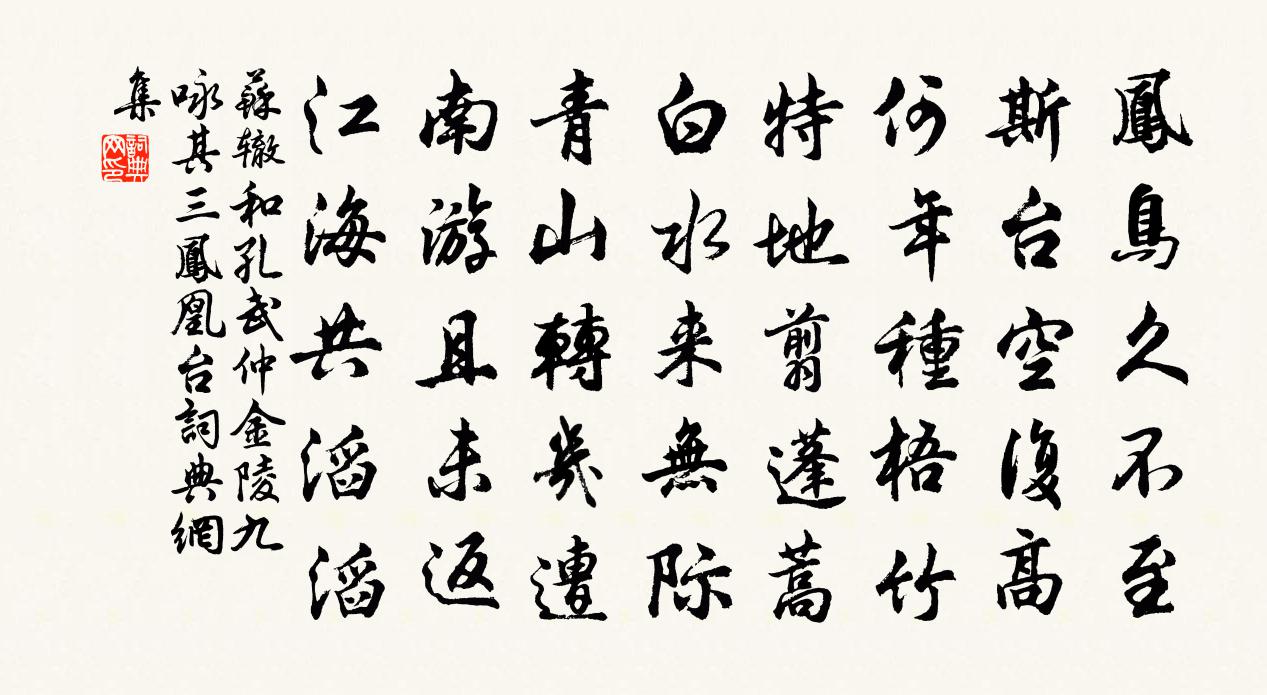 鳳鳥久不至
斯台空復高
何年種梧竹
特地翦蓬蒿
白水来無际
青山轉幾遭
南游且未返
江海共滔滔
蘇辙和孔武仲金陵九
咏其三鳳凰台詞典網
集
詞典网印